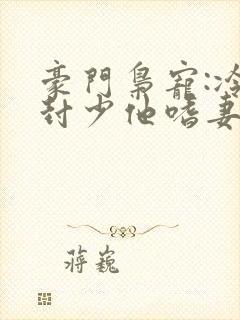 豪門梟寵:冷
封少他嗜妻
蔣巍